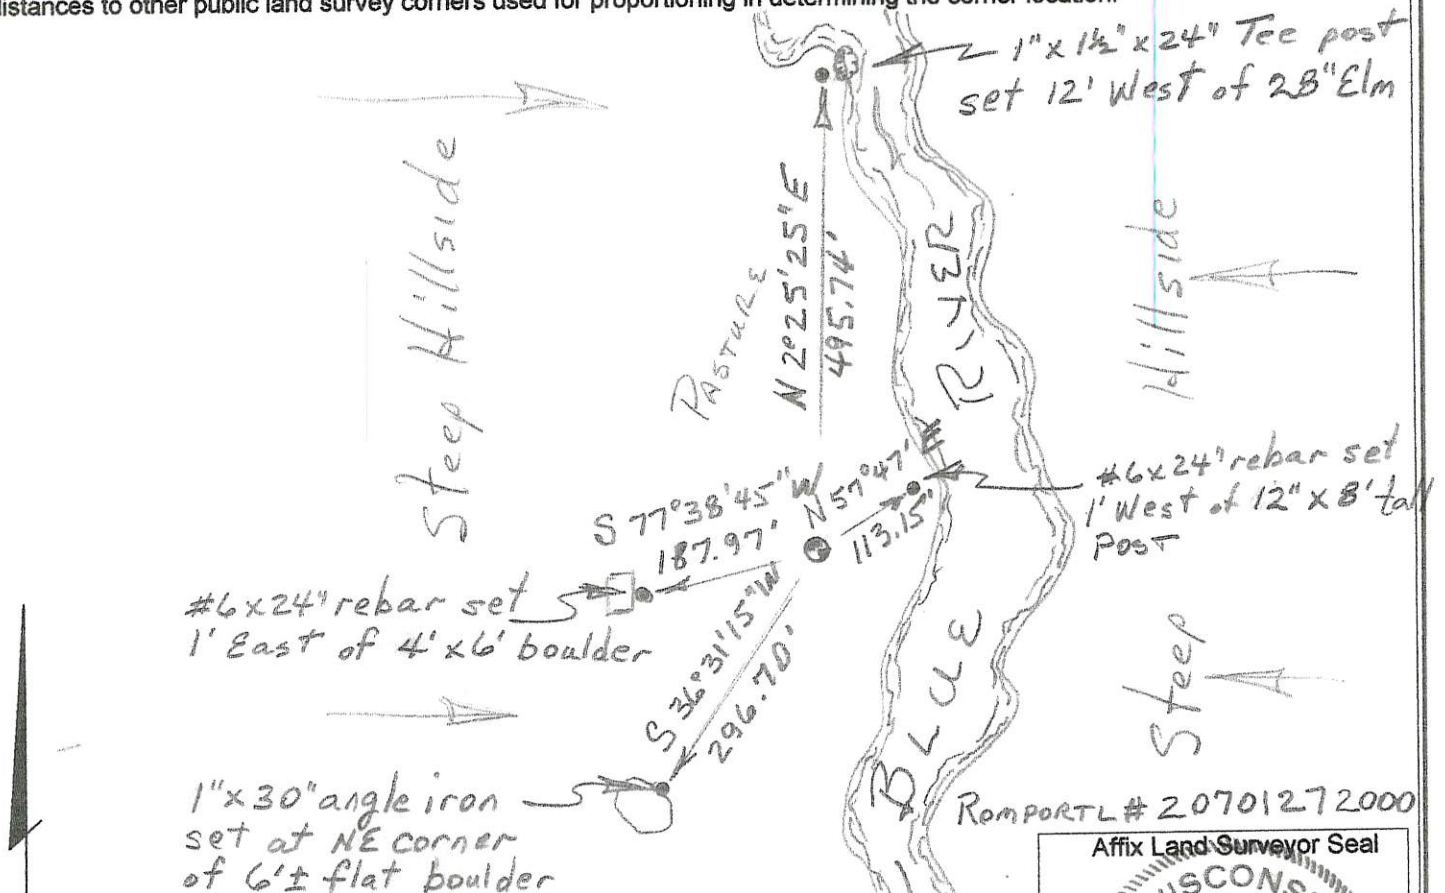 distances to other public land survey corners used for proportioning in determining the corner location.
1" x 1½" x 24" Tee post
set 12' West of 28" Elm
Steep Hillside
PASTURE
N 2°25'25"E
495.74'
RIVER
Hillside
#6x24" rebar set
1' West of 12" x 8' tall
Post
N 57°47'
113.15'
S 77°38'45"W
187.97'
#6x24" rebar set
1' East of 4'x6' boulder
S 36°31'15"W
296.70'
BLUE
Steep
1"x30" angle iron
set at NE corner
of 6'± flat boulder
ROMPORTL# 20701272000
Affix Land Surveyor Seal
SCONS